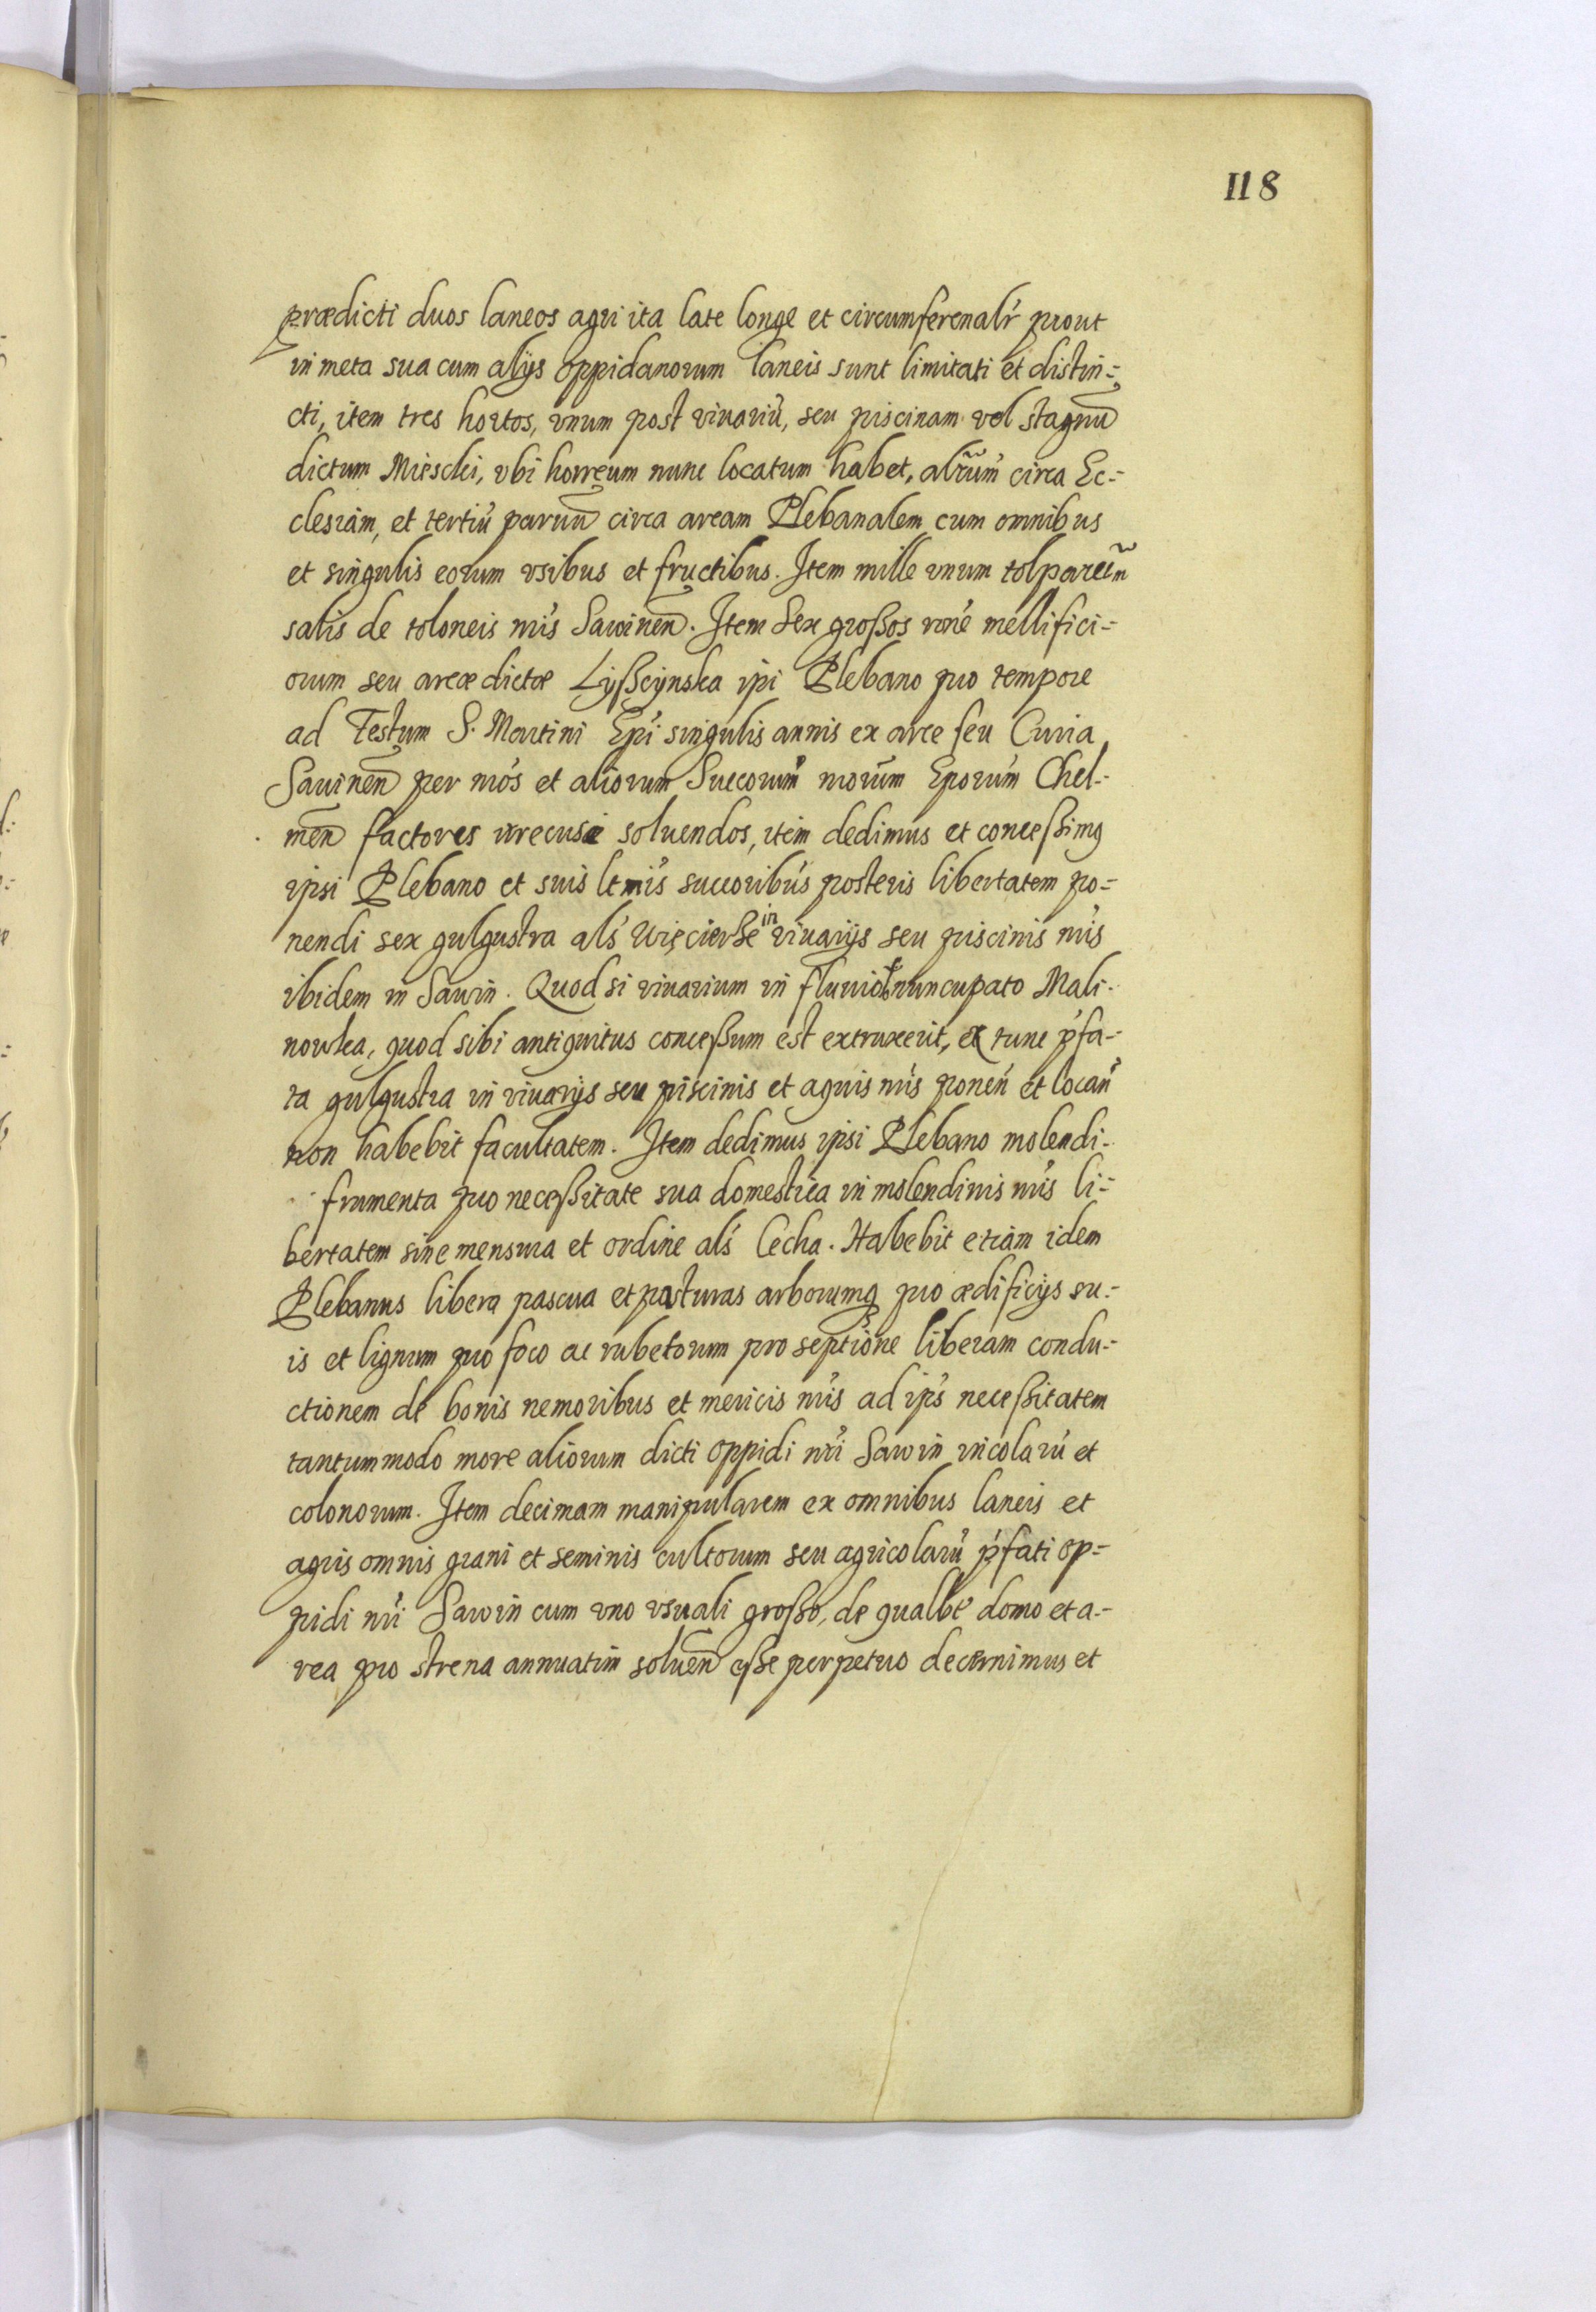 118
prædicti duos laneos agri ita late longe et circumferenalr̃ prout
in meta sua cum alijs oppidanorum laneis sunt limitati et distin=
cti, item tres hortos, vnum post viuariũ, seu piscinam vel stagnũ
dictum Mieschi, vbi horreum nunc locatum habet, alr̃um circa Ec=
clesiam, et tertiũ paruũ circa aream Plebanalem cum omnibus
et singulis eorum vsibus et fructibus. Item mille vnum tolparũm
salis de toloneis nr̃is Sawineñ. Item Sex großos rõne mellifici=
orum seu arcæ dictæ Lyßcÿnska ipi Plebano pro tempore
ad Festum S. Martini Epĩ singulis annis ex arce seu Curia
Sauineñ per nr̃os et aliorum Succorum̃ nr̃orum Eporum̃ Chel=
meñ factores irrecuse soluendos, item dedimus et conceßimq
ipsi Plebano et suis ltmĩs succoribus̃ posteris libertatem po=
nendi sex gulgustra als̃ Więcierże in viuarijs seu piscinis nr̃is
ibidem in Sawin. Quod si viuarium in fluuio nuncupato Mali=
nowka, quod sibi antiquitus conceßum est extruxerit, ex tunc p̃fa=
ta gulgustra in viuarijs seu piscinis et aquis nr̃is poneñ et locañ
non habebit facultatem. Item dedimus ipsi Plebano molendi=
frumenta pro neceßitate sua domestica in molendinis nr̃is li=
bertatem sine mensura et ordine als̃ Cecha. Habebit etiam idem
Plebanus libera pascua et pasturas arborumq pro ædificijs su=
is et lignum pro foco ac rubetorum pro septione liberam condu=
ctionem de bonis nemoribus et mericis nr̃is ad ips̃ neceßitatem
tantummodo more aliorum dicti oppidi nr̃i Sawin incolarũ et
colonorum. Item decimam manipularem ex omnibus laneis et
agris omnis grani et seminis cultorum seu agricolarũ p̃fati op=
pidi nr̃i Sawin cum vno vsuali großo, de qualbt̃ domo et a=
rea pro strena annuatim solueñ eße perpetuo decernimus et